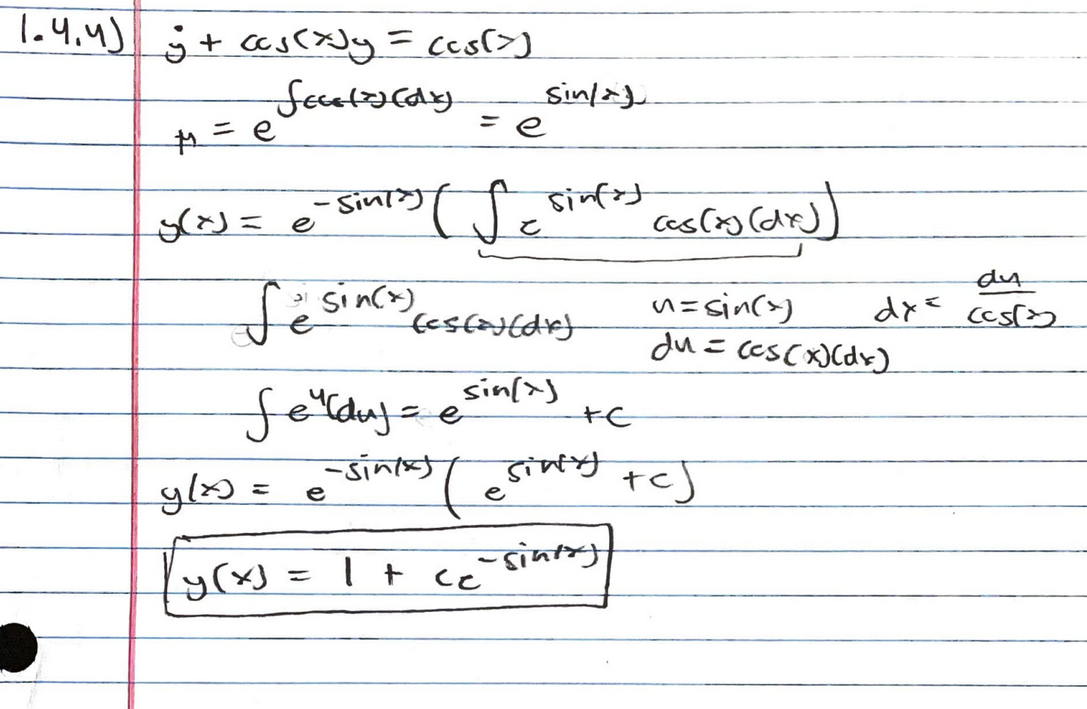 1.4.4) ẏ + cos(x)y = cos(x)
μ = e^∫cos(x)(dx) = e^sin(x)
y(x) = e^-sin(x) ( ∫ e^sin(x) cos(x)(dx) )
∫ e^sin(x) cos(x)(dx) u = sin(x) dx = du/cos(x)
du = cos(x)(dx)
∫ e^u(du) = e^sin(x) + c
y(x) = e^-sin(x) ( e^sin(x) + c )
y(x) = 1 + ce^-sin(x)